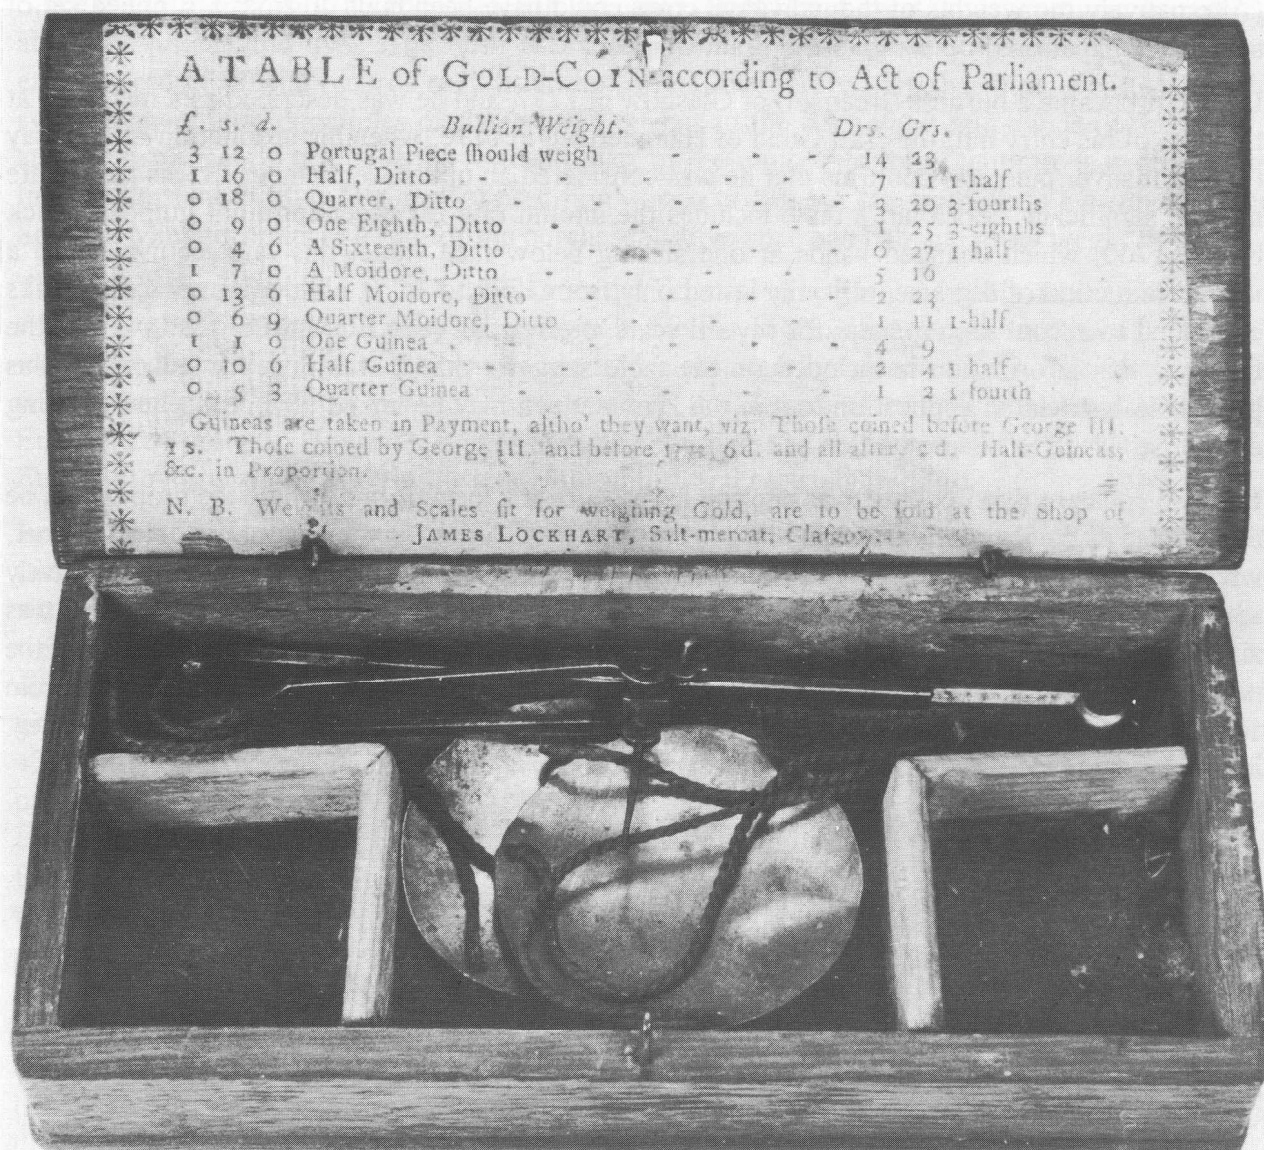 A TABLE of GOLD-COIN according to Act of Parliament.
£. s. d. Bullian Weight. Drs. Grs.
3 12 0 Portugal Piece ſhould weigh - - - 14 23
1 16 0 Half, Ditto - - - - - 7 11 1-half
0 18 0 Quarter, Ditto - - - - - 3 20 3-fourths
0 9 0 One Eighth, Ditto - - - - 1 25 3-eighths
0 4 6 A Sixteenth, Ditto - - - 0 27 1 half
1 7 0 A Moidore, Ditto - - - - 5 16
0 13 6 Half Moidore, Ditto - - - - 2 23
0 6 9 Quarter Moidore, Ditto - - - 1 11 1-half
1 1 0 One Guinea - - - - - 4 9
0 10 6 Half Guinea - - - - - 2 4 1 half
0 5 3 Quarter Guinea - - - - 1 2 1 fourth
Guineas are taken in Payment, altho' they want, viz. Thoſe coined before George III.
1 s. Thoſe coined by George III. and before 1772, 6 d. and all after, d. Half-Guineas,
&c. in Proportion.
N. B. Weights and Scales fit for weighing Gold, are to be ſold at the Shop of
JAMES LOCKHART, Salt-mercat, Glaſgow.